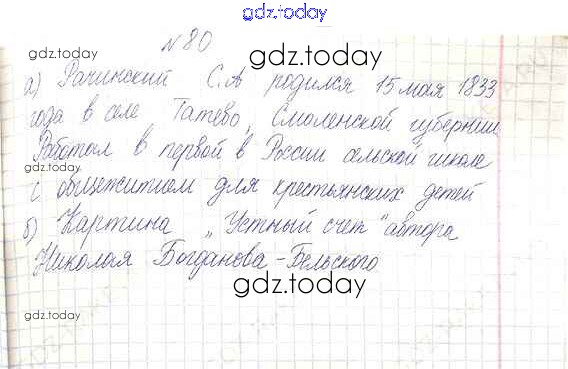 gdz.today
№80
gdz.today
gdz.today
а) Рачинский С.А родился 15 мая 1833
года в селе Татево, Смоленской губернии
gdz.today
Работал в первой в России сельской школе
gdz.today
с общежитием для крестьянских детей
б) Картина „Устный счет" автора
Николая Богданова-Бельского
gdz.today
gdz.today